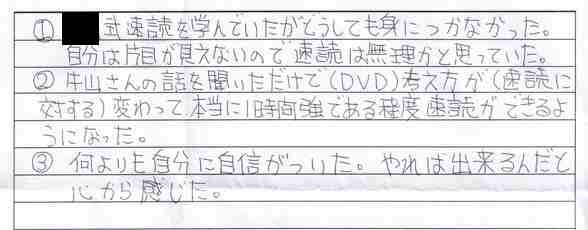 ① 式速読を学んでいたがどうしても身につかなかった。
自分は片目が見えないので速読は無理かと思っていた。
② 牛山さんの話を聞いただけで(DVD)考え方が(速読に
対する)変わって、本当に1時間強である程度速読ができるよ
うになった。
③ 何よりも自分に自信がついた。やれば出来るんだと
心から感じた。